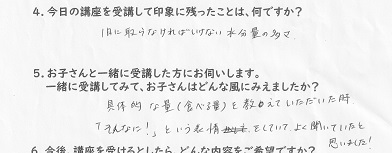 4. 今日の講座を受講して印象に残ったことは、何ですか？
1日に取らなければいけない水分量の多さ
5. お子さんと一緒に受講した方にお伺いします。
一緒に受講してみて、お子さんはどんな風にみえましたか？
具体的な量(食べる量)を教えていただいた時
「そんなに！」という表情をしていて よく聞いていたと
思いました！
6. 今後、講座を受けるとしたら、どんな内容をご希望ですか？